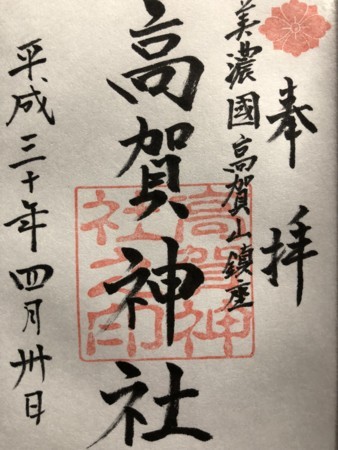 奉拝
美濃國高賀山鎮座
高賀神社
高賀神社之印
平成三十年四月卅日